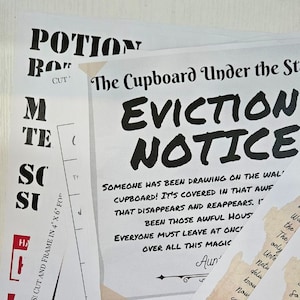 POTION
CUT
M
TE
SC
SU
HA
S! CUT AND FRAME IN 4"X 6" FO
The Cupboard Under the St
EVICTION
NOTICE
SOMEONE HAS BEEN DRAWING ON THE WAL
CUPBOARD! IT'S COVERED IN THAT AWF
THAT DISAPPEARS AND REAPPEARS. I
BEEN THOSE AWFUL HOUS
EVERYONE MUST LEAVE AT ONC
OVER ALL THIS MAGIC
Aun